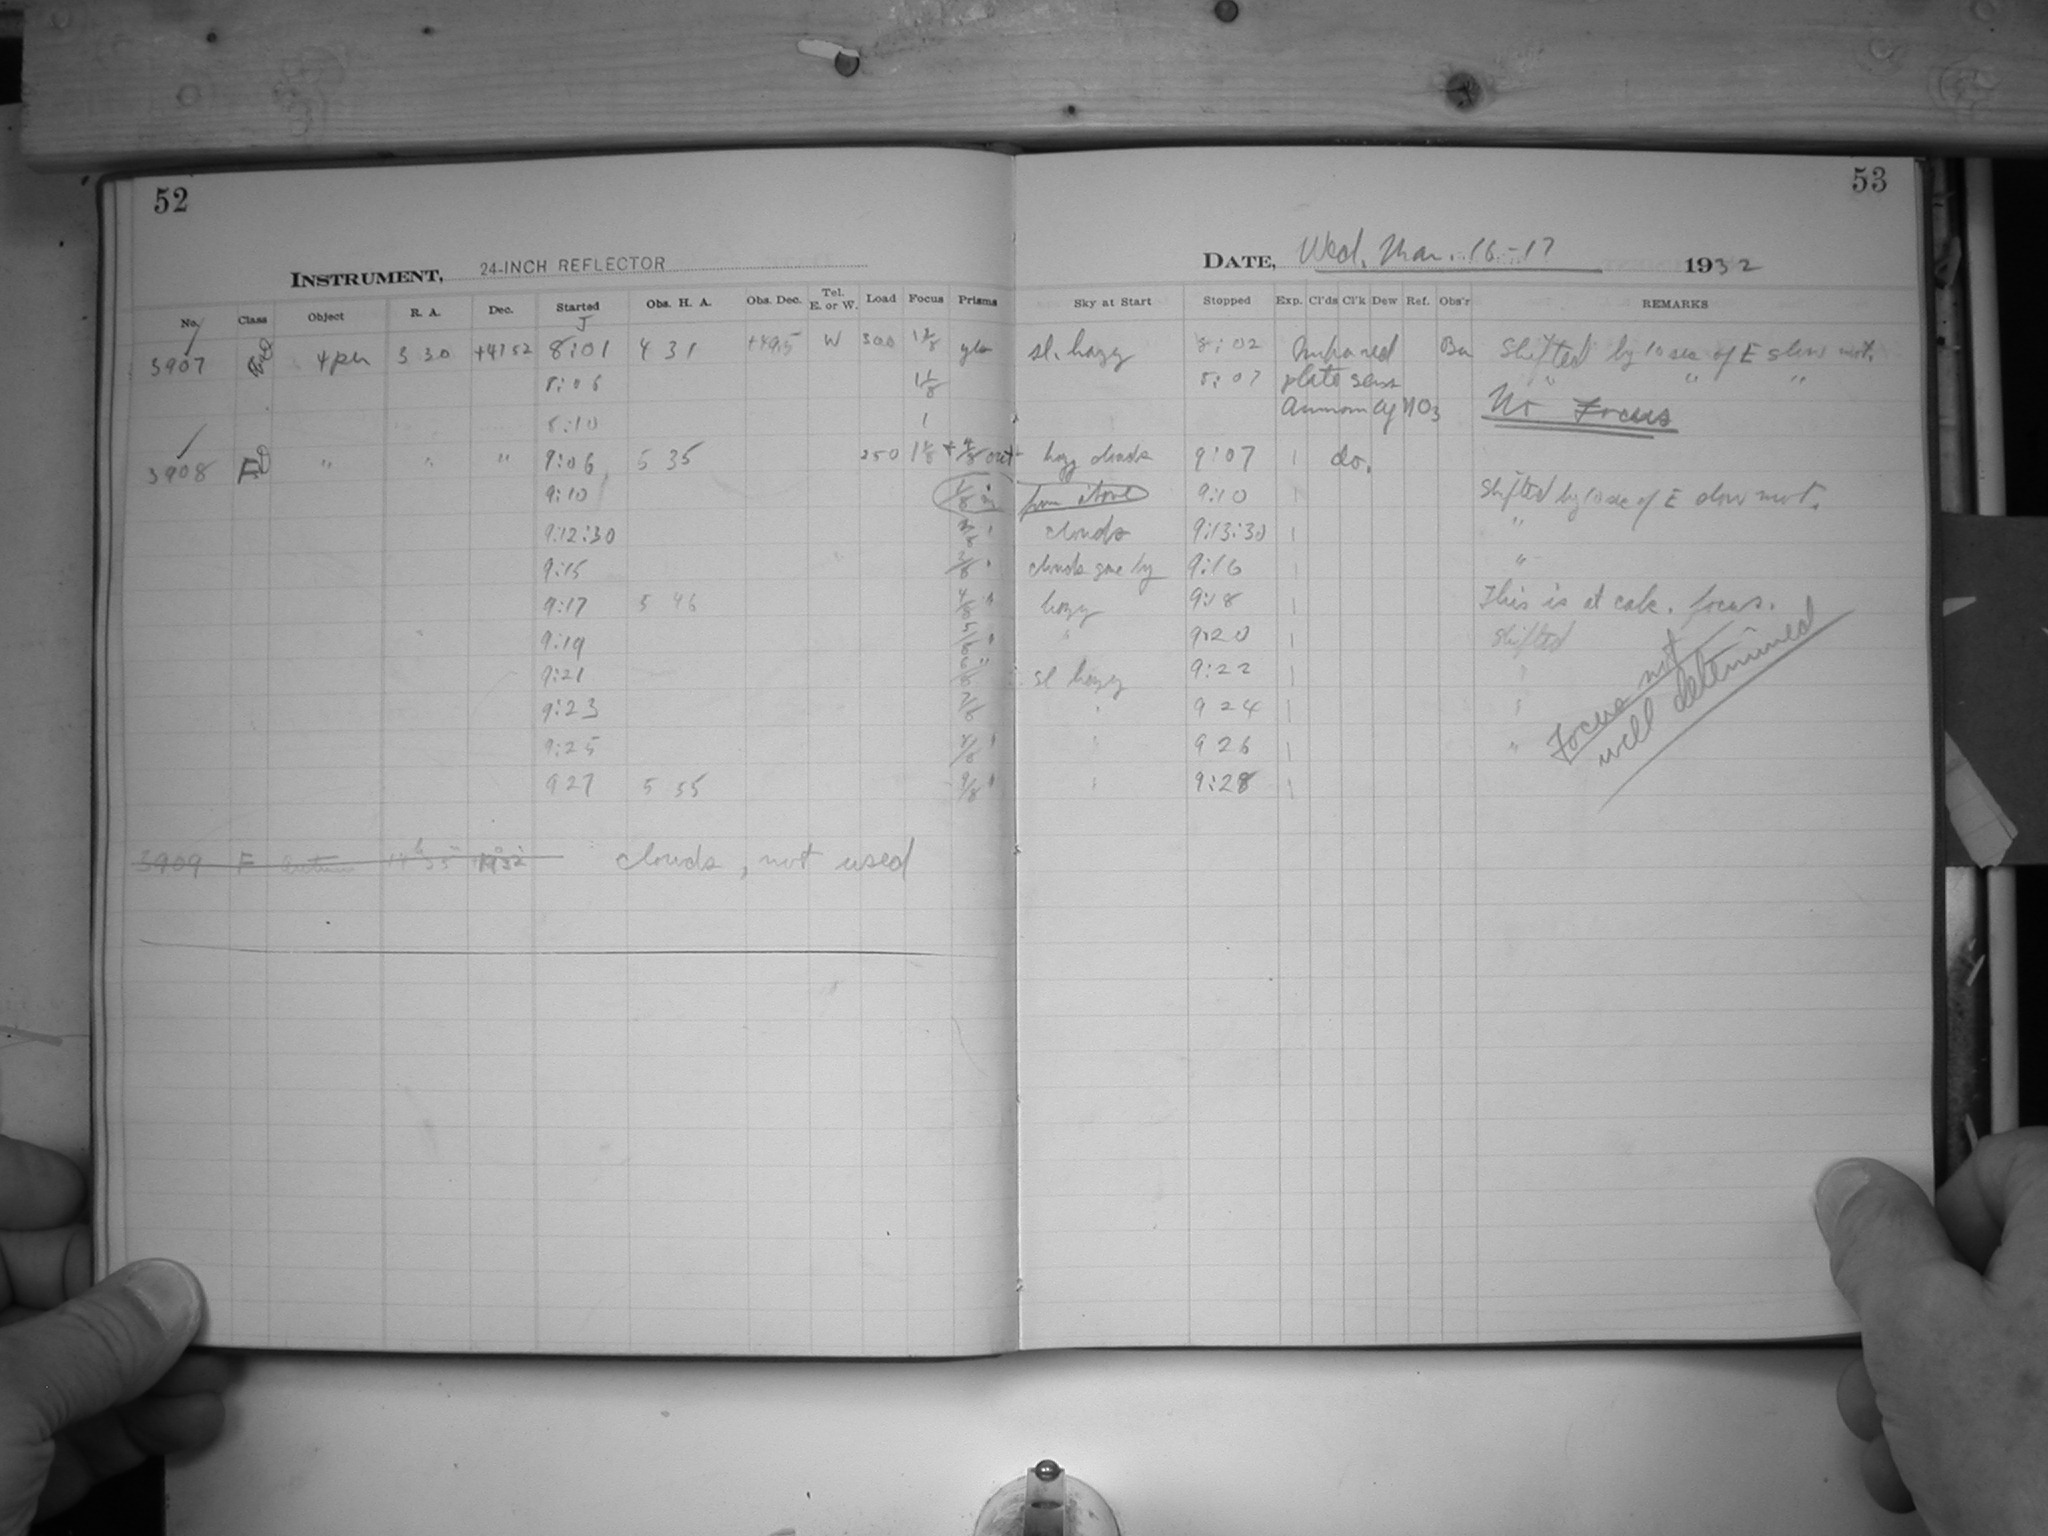 52
53
INSTRUMENT, 24-INCH REFLECTOR
DATE, Wed. Mar. 16-17 1932
No. Class Object R. A. Dec. Started Obs. H. A. Obs. Dec. Tel. E. or W. Load Focus Prisms Sky at Start Stopped Exp. Cl'ds Cl'k Dew Ref. Obs'r REMARKS
3907 4 per 3 30 +47 52 8:01 4 31 +49.5 W 300 sl. hazy 8:02 Infra red Shifted by 10 sec of E slow mot.
8:06 1 1/8 8:07 plate sens " " "
8:10 1 Ammon Ag NO3 No Focus
3908 " " " 9:06 5 35 250 out hazy clouds 9:07 1 do.
9:10 from above 9:10 1 Shifted by 10 sec of E slow mot.
9:12:30 clouds 9:13:30 1 "
9:15 clouds gone by 9:16 1 "
9:17 5 46 4/8 " hazy 9:18 1 This is at calc. focus.
9:19 5/8 " " 9:20 1 Shifted
9:21 6/8 " sl hazy 9:22 1 "
9:23 7/8 " 9 24 1 "
9:25 8/8 " " 9 26 1 "
9 27 5 35 9/8 " " 9:28 1
Focus not
well determined
3909 F clouds, not used